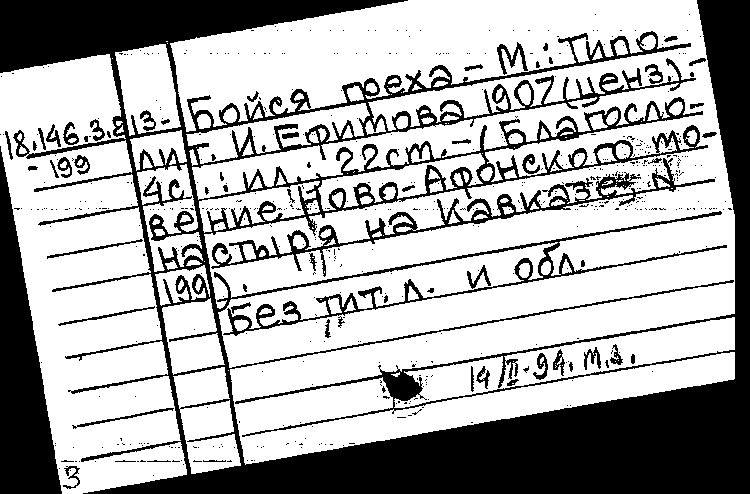 18.146.3.213-
-199
Бойся греха. - М.: Типо-
лит. И. Ефимова, 1907 (ценз.). -
4с.: ил.; 22см. - (Благосло-
вение Ново-Афонского мо-
настыря на Кавказе; N
199).
Без тит. л. и обл.
14/II-94. м.з.
3